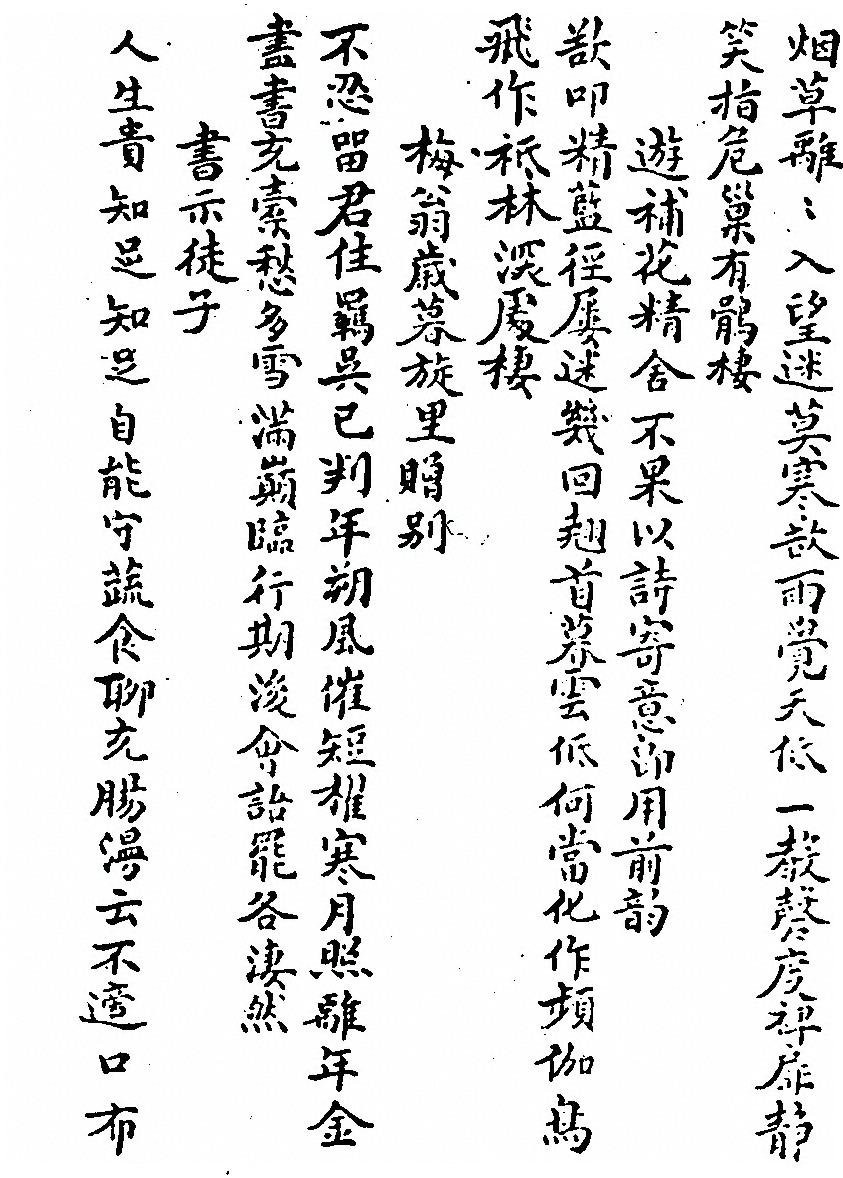 烟草離〻入望迷莫寒欲雨覺天低一聲磬度禅扉静
笑指危巢有鶻棲
遊補花精舍不果以詩寄意即用前韵
欲叩精藍徑屡迷幾回翘首暮雲低何當化作頻伽鳥
飛作祗林深處棲
梅翁歲暮旋里贈别
不恐畱君住羈吳已判年朔風催短櫂寒月照離年金
盡書充橐愁多雪滿巔臨行期後會詒罷各淒然
書示徒子
人生貴知足知足自能守蔬食聊充腸漫云不適口布